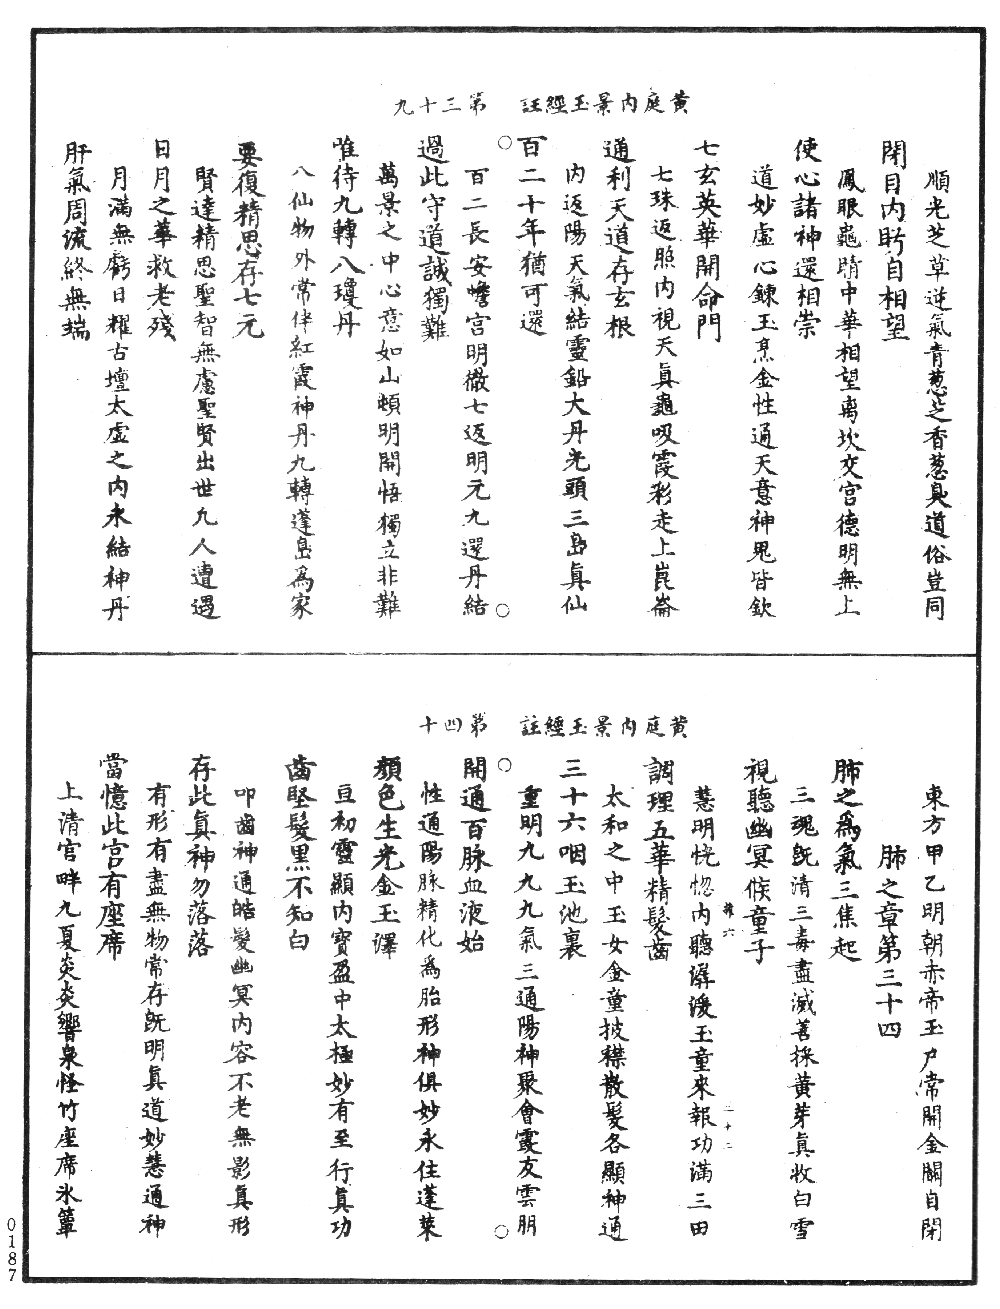 黃庭內景玉經註　第三十九
順光芝草逆氣青蔥芝香蔥臭道俗豈同
閉目內眄自相望
鳳眼龜睛中華相望离坎交宮德明無上
使心諸神還相崇
道妙虛心鍊玉烹金性通天意神鬼皆欽
七玄英華開命門
七珠返照內視天真龜吸霞彩走上崑崙
通利天道存玄根
內返陽天氣結靈鉛大丹光頭三島真仙
百二十年猶可還
百二長安蟾宮明徹七返明元九還丹結
過此守道誠獨難
萬景之中心意如山頓明開悟獨立非難
惟待九轉八瓊丹
八仙物外常伴紅霞神丹九轉蓬島為家
要復精思存七元
賢達精思聖智無慮聖賢出世凡人遭遇
日月之華救老殘
月滿無虧日耀古壇太虛之內永結神丹
肝氣周流終無端
黃庭內景玉經註　第四十
東方甲乙明朝赤帝玉戶常開金關自閉
肺之章第三十四
肺之為氣三焦起
三魂既清三毒盡滅善採黃芽真收白雪
視聽幽冥候童子
慧明恍惚內聽潺湲玉童來報功滿三田
調理五華精髮齒
太和之中玉女金童披襟散髮各顯神通
三十六咽玉池裏
重明九九九氣三通陽神聚會霞友雲朋
開通百脉血液始
性通陽脉精化為胎形神俱妙永住蓬萊
顏色生光金玉澤
豆初靈顯內寶盈中太極妙有至行真功
齒堅髮黑不知白
叩齒神通皓髮幽冥內容不老無影真形
存此真神勿落落
有形有盡無物常存既明真道妙慧通神
當憶此宮有座席
上清宮畔九夏炎炎響泉怪竹座席氷簟
0187